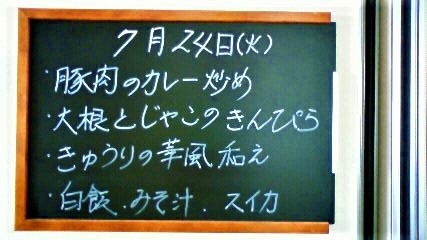 7月24日(火)
・豚肉のカレー炒め
・大根とじゃこのきんぴら
・きゅうりの華風和え
・白飯.みそ汁.スイカ